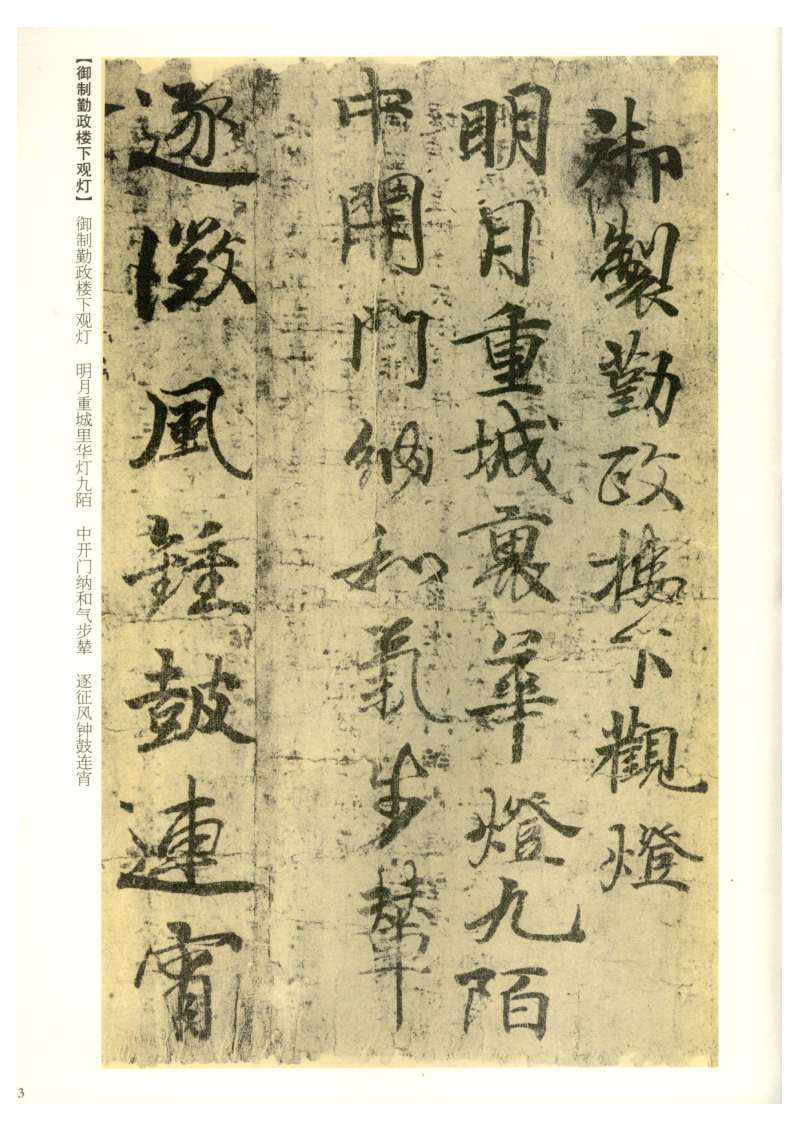 御製勤政樓下觀燈
明月重城裏華燈九陌
中開門納和氣步輦
逐微風鍾鼓連宵
【御制勤政楼下观灯】 御制勤政楼下观灯 明月重城里华灯九陌 中开门纳和气步辇 逐征风钟鼓连宵
3